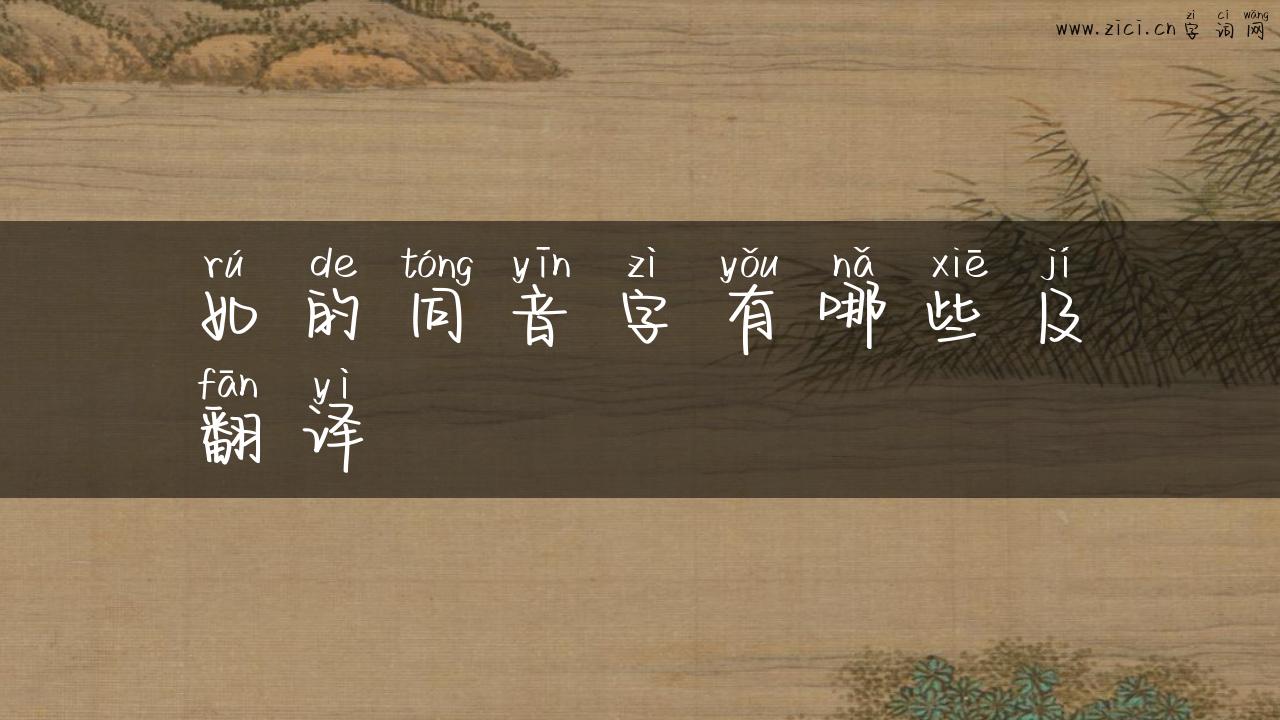 zì cí wǎng
www.zici.cn 字词网
rú de tóng yīn zì yǒu nǎ xiē jí
如的同音字有哪些及
fān yì
翻译